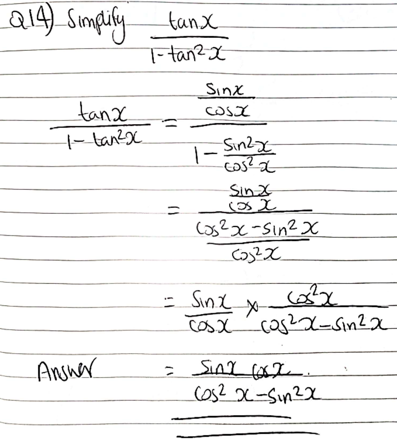 Q14) Simplify tanx / 1-tan²x
tanx / 1-tan²x = (sinx / cosx) / (1 - sin²x / cos²x)
= (sinx / cosx) / ((cos²x-sin²x) / cos²x)
= sinx / cosx × cos²x / cos²x-sin²x
Answer = sinx cosx. / cos²x-sin²x